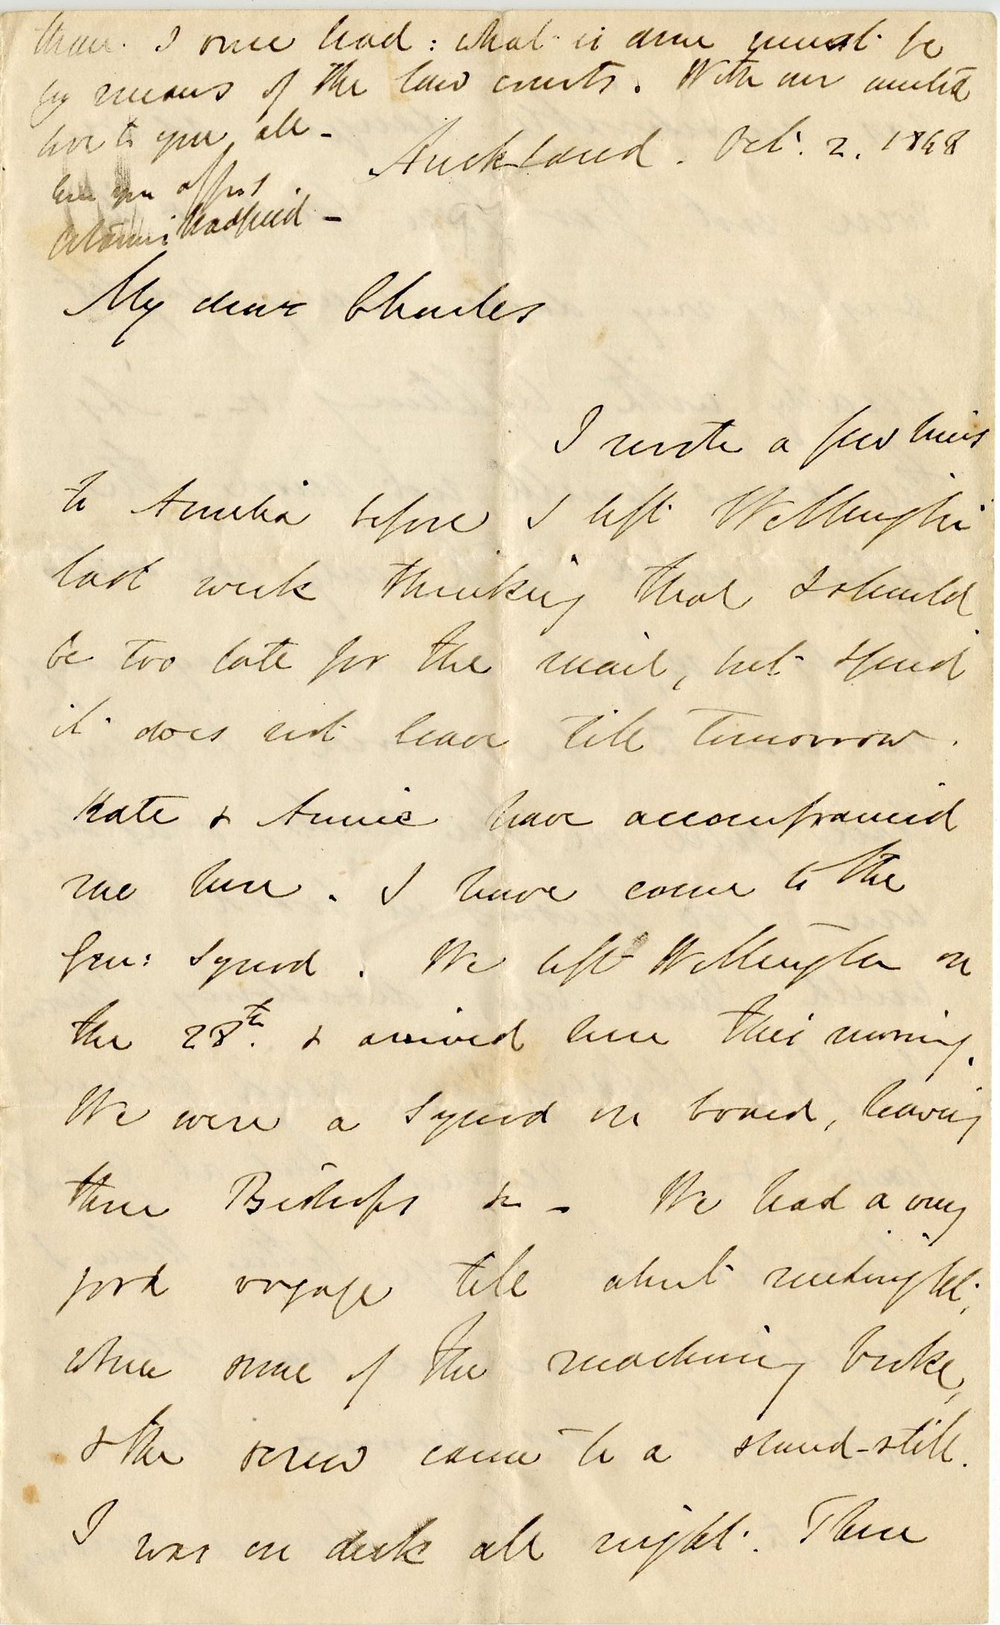 than I once had: what is done must be
by means of the law courts. With our united
love to you all -
Auckland. Oct. 2. 1868
Octavius Hadfield -
My dear Charles
I wrote a few lines
to Amelia before I left Wellington
last week thinking that I should
be too late for the mail, but find
it does not leave till tomorrow.
Kate & Annie have accompanied
me here. I have come to the
Gen: Synod. We left Wellington on
the 28th. & arrived here this morning.
We were a Synod on board, having
three Bishops &c - We had a very
good voyage till about midnight,
when some of the machinery broke,
& the screw came to a stand-still.
I was on deck all night. There